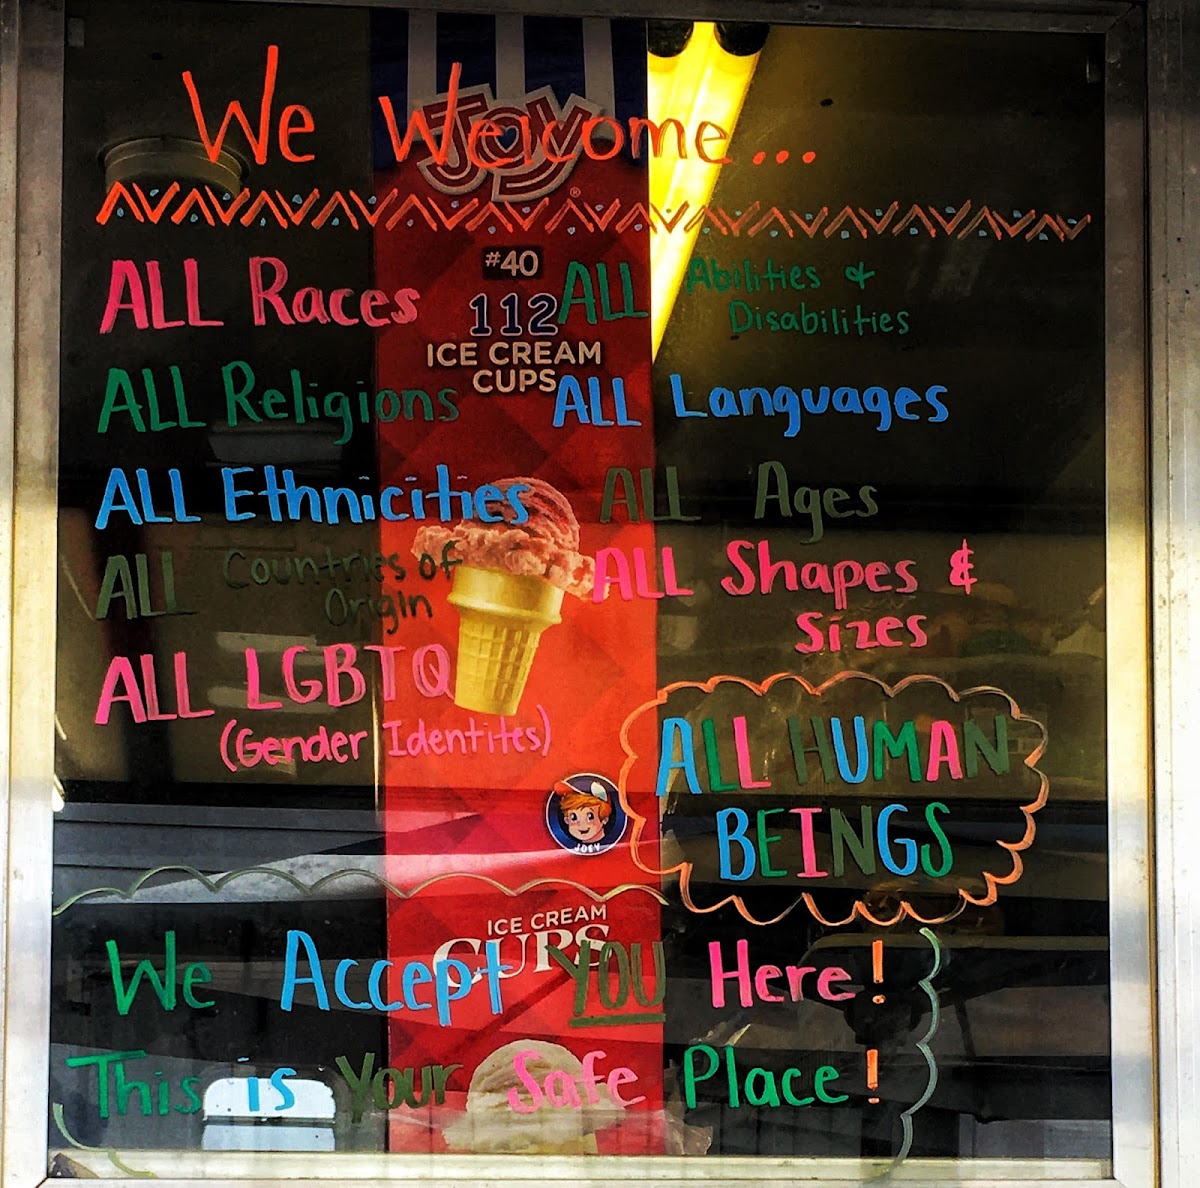 We Welcome...
JOY
®
#40
112
ICE CREAM
CUPS
ALL Races
ALL Religions
ALL Ethnicities
ALL Countries of
Origin
ALL LGBTQ
(Gender Identites)
ALL Abilities &
Disabilities
ALL Languages
ALL Ages
ALL Shapes &
Sizes
ALL HUMAN
BEINGS
JOEY
ICE CREAM
CUPS
We Accept YOU Here!
This is Your Safe Place!